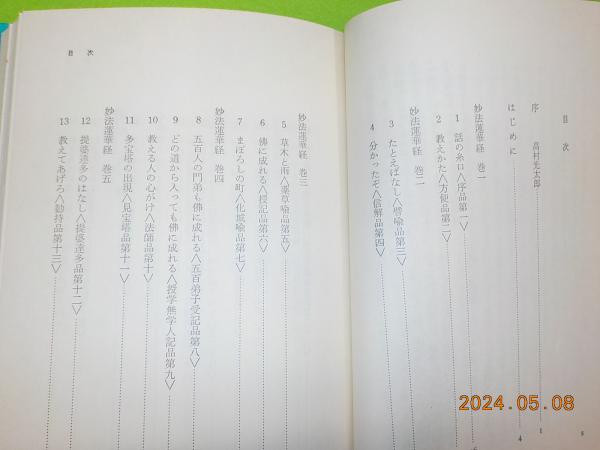 目次
序 高村光太郎
はじめに
妙法蓮華経 巻一
1 話の糸口〈序品第一〉
2 教えかた〈方便品第二〉
妙法蓮華経 巻二
3 たとえばなし〈譬喩品第三〉
4 分かったぞ〈信解品第四〉
目次
妙法蓮華経 巻三
5 草木と雨〈薬草喩品第五〉
6 佛に成れる〈授記品第六〉
7 まぼろしの町〈化城喩品第七〉
妙法蓮華経 巻四
8 五百人の門弟も佛に成れる〈五百弟子受記品第八〉
9 どの道から入っても佛に成れる〈授学無学人記品第九〉
10 教える人の心がけ〈法師品第十〉
11 多宝塔の出現〈見宝塔品第十一〉
12 提婆達多のはなし〈提婆達多品第十二〉
妙法蓮華経 巻五
13 教えてあげろ〈勧持品第十三〉
2024.05.08